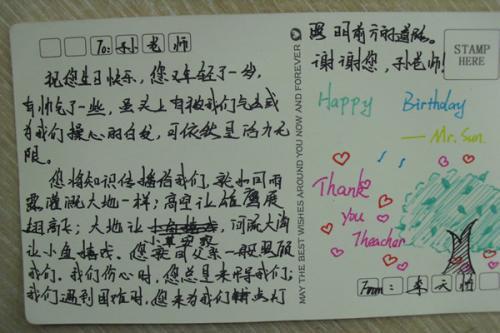 To: 孙老师
祝您生日快乐，您又年轻了一岁，
又帅气了一些，虽头上有被我们气出或
为我们操心的白发，可依然是活力无
限。
您将知识传播给我们，就如同雨
露灌溉大地一样；高空让雄鹰展
翅高飞；大地让小草安歇，河流大海
让小鱼嬉戏。您就如父亲一般照顾
我们。我们伤心时，您总是来哄我们；
我们遇到困难时，您来为我们点灯
照明前方的道路。
谢谢您，孙老师！
STAMP
HERE
MAY THE BEST WISHES AROUND YOU NOW AND FOREVER
Happy Birthday
— Mr. Sun.
Thank
you
Theacher
From: 李天怡